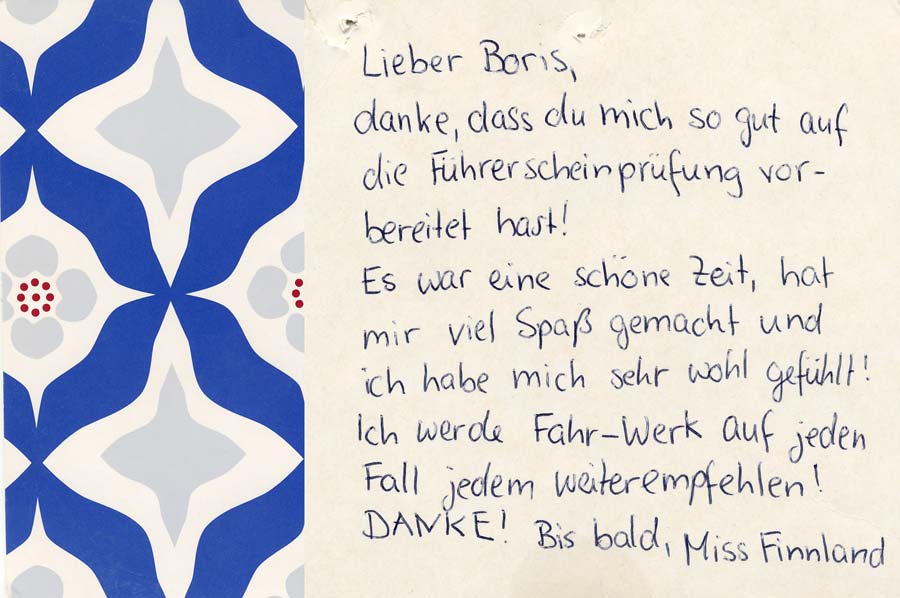 Lieber Boris,
danke, dass du mich so gut auf
die Führerscheinprüfung vor-
bereitet hast!
Es war eine schöne Zeit, hat
mir viel Spaß gemacht und
ich habe mich sehr wohl gefühlt!
Ich werde Fahr-Werk auf jeden
Fall jedem weiterempfehlen!
DANKE! Bis bald, Miss Finnland